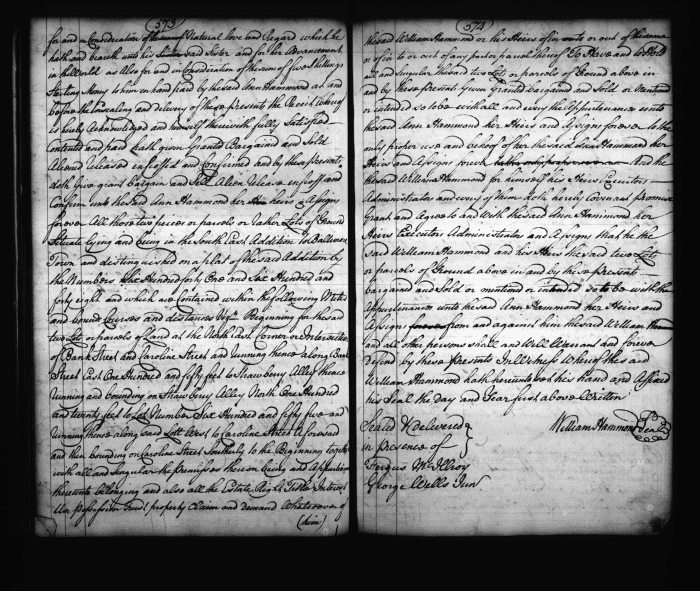 573
for and in Consideration of Natural love and Regard which he
hath and beareth unto his Sister said Sister and for her Advancement
in the World as Also for and in Consideration of the sum of five shillings
Sterling Money to him in hand paid by the said Ann Hammond at and
before the Ensealing and delivery of these presents the Receit whereof
is hereby Acknowledged and himself therewith fully Satisfied
Contented and paid hath given Granted Bargained and Sold
Aliened Released infeoffd and Confirmed and by these presents
doth Give grant bargain and Sell Alien Release infeoff and
Confirm unto the said Ann Hammond her heirs & Assigns
forever All those two pieces or parcels or Lots of Ground
Situate lying and being in the South East Addition to Baltimore
Town and distinguished on a plat of the said Addition by
the Numbers Six Hundred forty One and Six Hundred and
forty eight and which are Contained within the following Metes
and bound Courses and distances Vizt Beginning for the said
two Lots or parcels of Land at the North East Corner or Intersection
of Bank Street and Caroline Street and running thence along Bank
Street East One Hundred and fifty feet to Strawberry Alley thence
running and bounding on Strawberry Alley North One Hundred
and twenty feet to Lot Number Six Hundred and fifty five and
running thence along said Lott West to Caroline Street aforesaid
and then bounding on Caroline Street Southerly to the Beginning together
with all and Singular the premises thereon being and Appurtinan
thereunto belonging and also all the Estate Right Title Interest
Use possession Trust property Claim and demand Whatsoever of
(him)
574
the said William Hammond or his Heirs of in unto or out of the same
or of in to or out of any part or parcel thereof To Have and to Hold
all and Singular the said two Lots or parcels of Ground above in
and by these present Given granted bargained and Sold or Mentiond
or intended so to be with all and every the Appurtenances unto
the said Ann Hammond her Heirs and Assigns forever to the
only proper use and behoof of her the said Ann Hammond her
Heirs and Assigns forever And the
the said William Hammond for himself his Heirs Executors
Administrators and every of them doth hereby Covenant promise
Grant and Agree to and With the said Ann Hammond her
Heirs Executors Administrators and Assigns that he the
said William Hammond and his Heirs the said two Lots
or parcels of Ground above in and by these presents
bargained and Sold or mentiond or intended so to be with the
Appurtenances unto the said Ann Hammond her Heirs and
Assigns from and against him the said William
and all other persons shall and Will Warrant and forever
Defend by these presents In Witness Whereof the said
William Hammond hath hereunto set his hand and Affixed
his Seal the Day and Year first above Written
Sealed & delivered
in presence of
William Hammond Seal
Fergus McIllroy
George Wells Jun